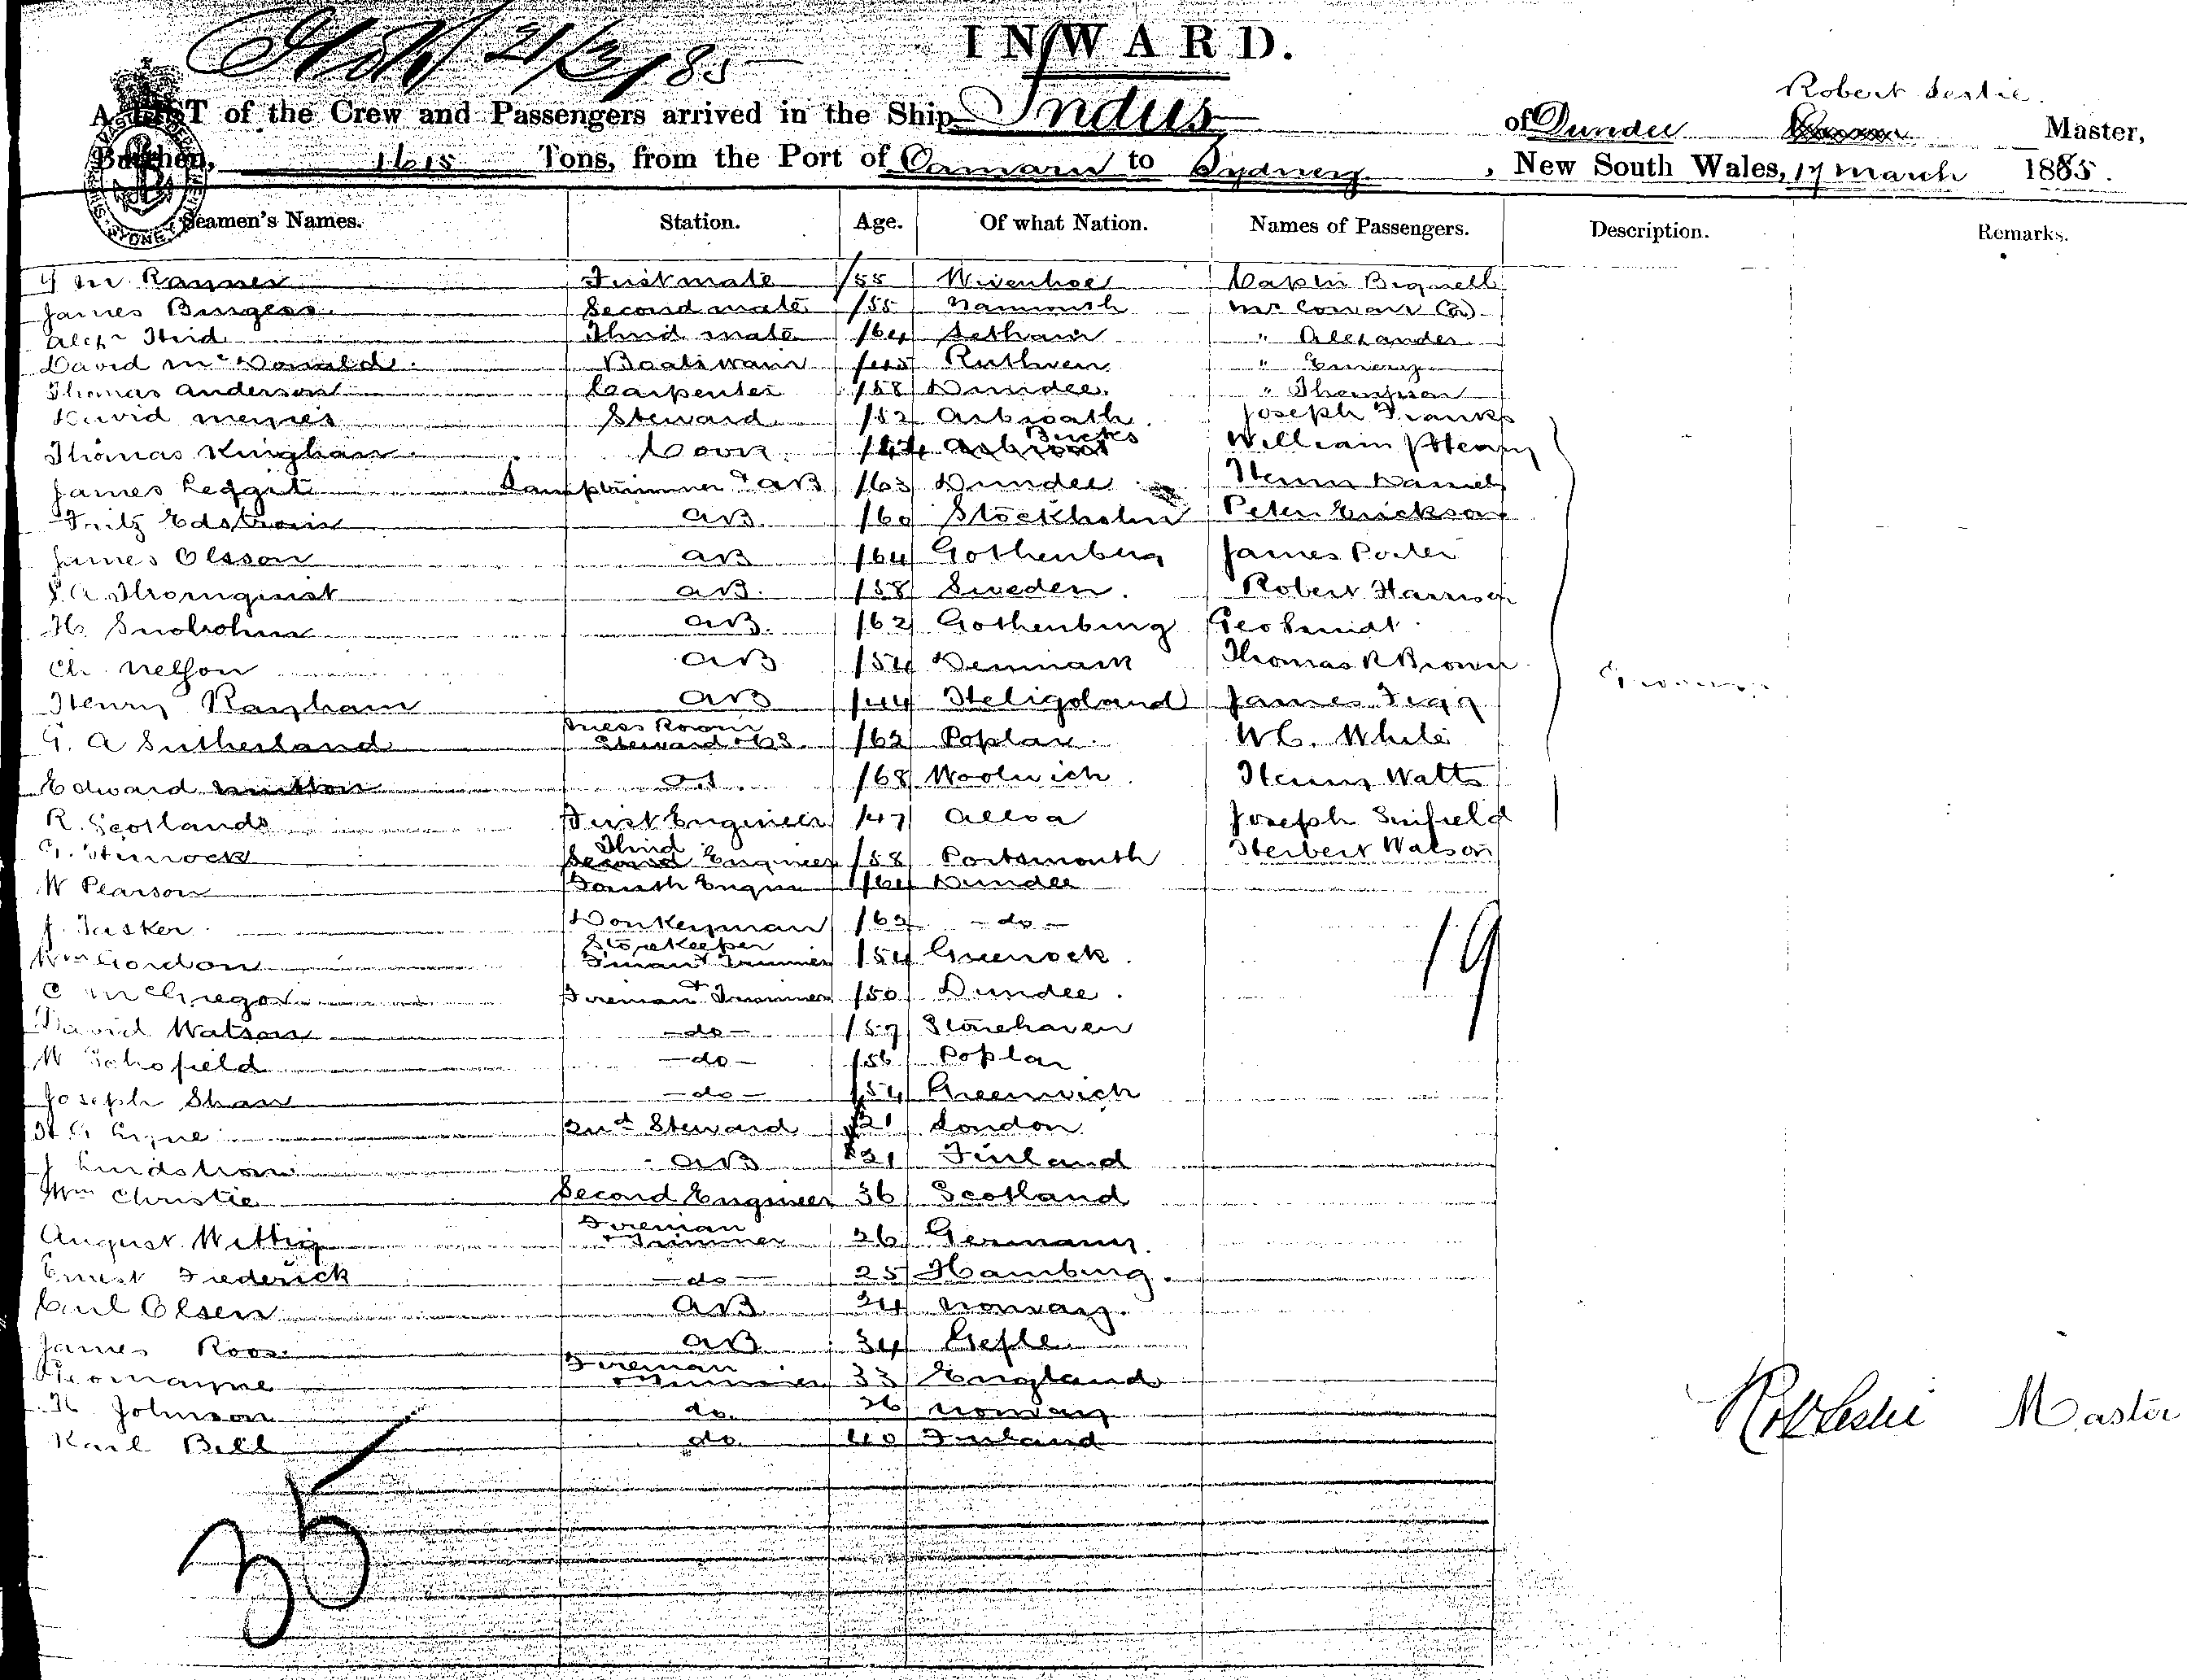 21/3/85
INWARD.
Robert Leslie
A LIST of the Crew and Passengers arrived in the Ship Indus of Dundee Master,
Burthen, 1615 Tons, from the Port of to Sydney, New South Wales, 17 March 1885.
Seamen's Names. Station. Age. Of what Nation. Names of Passengers. Description. Remarks.
Rayner First mate /55 Wivenhoe Captn Bignell
James Burgess Second mate /55 Mr Cowan
Third mate /64 " Alexander
David McDonald Boatswain /45 Ruthven " Emery
Thomas Anderson Carpenter /58 Dundee " Thompson
David Steward /52 Arbroath Joseph Franks
Thomas Kingham Cook Bucks William
James Leggit Lamptrimmer & AB /63 Dundee Daniels
Fritz Edstrom AB /60 Stockholm Peter Erickson
James Olsson AB /64 Gothenberg James Porter
Thornquist AB. /58 Sweden. Robert Harrison
H. AB. /62 Gothenburg Geo Smidt
Ch. Nelson AB /54 Denmark Thomas R Brown
Henry Rayham AB /44 Heligoland James Figg
G. A Sutherland Mess Room Steward /62 Poplar. W C. White
Edward O.S. /68 Woolwich Henry Watts
R. Scotlands First Engineer /47 Alloa Joseph Sinfield
G. Sturrock Third Second Engineer /58 Portsmouth Herbert Watson
W Pearson Fourth Engineer /64 Dundee
J. Tasker Donkeyman /62 - do -
Wm Gordon Storekeeper Fireman & Trimmer /54 Greenock
C McGregor Fireman & Trimmer /50 Dundee.
19
David Watson - do - /59 Stonehaven
W Schofield - do - /56 Poplar
Joseph Shaw - do - /54 Greenwich
2nd Steward 21 London
J Lindstrom AB 21 Finland
Wm Christie Second Engineer 36 Scotland
August Wittig Fireman & Trimmer 26 Germany.
Ernest Frederick - do - 25 Hamburg.
Carl Olsen AB 24 Norway.
James Roos AB 34 Gefle
Geo Mayne Fireman & Trimmer 33 England
H. Johnson do. 26 Norway
Karl Bell do 40 Finland
Robt Leslie Master
35